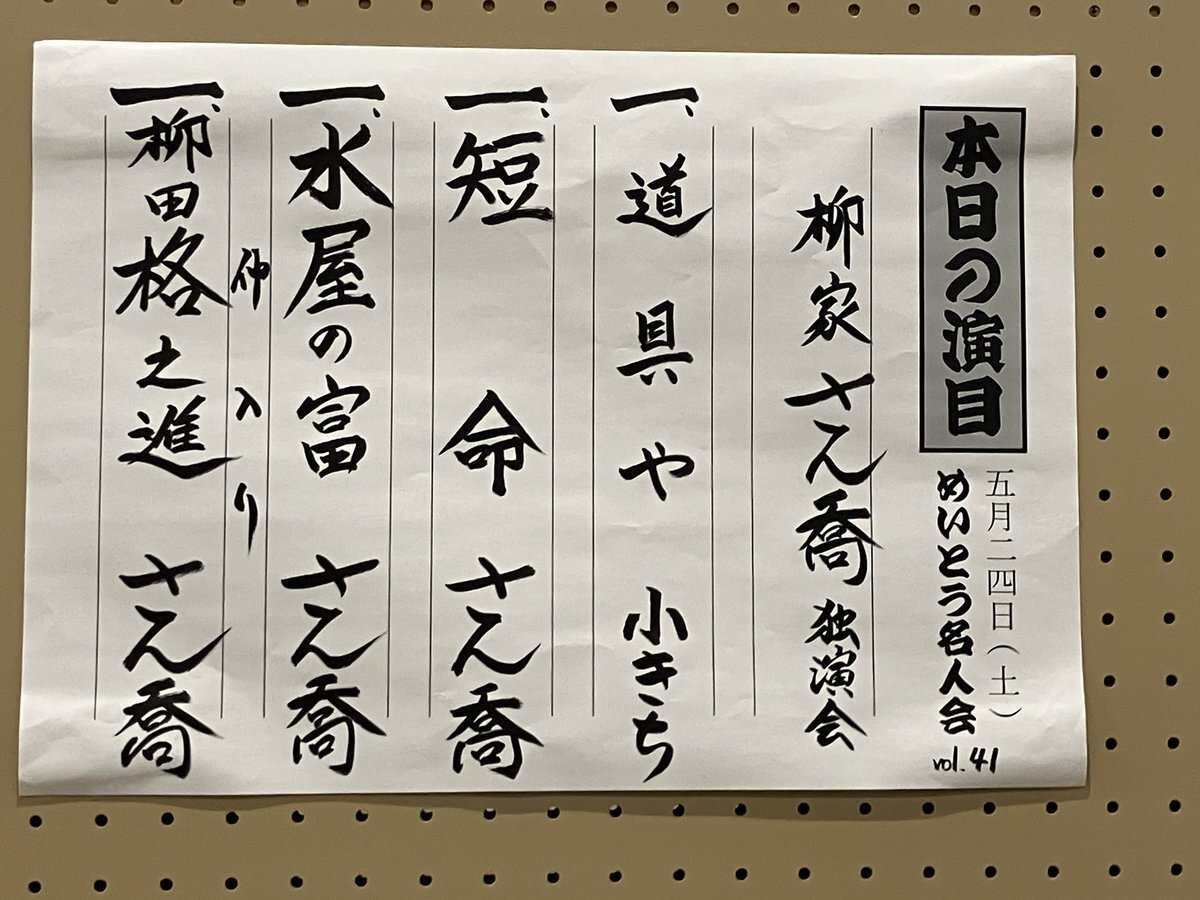 本日の演目
五月二四日(土)
めいとう名人会
vol.41
柳家さん喬 独演会
一、道具や 小きち
一、短命 さん喬
一、水屋の富 さん喬
仲入り
一、柳田格之進 さん喬